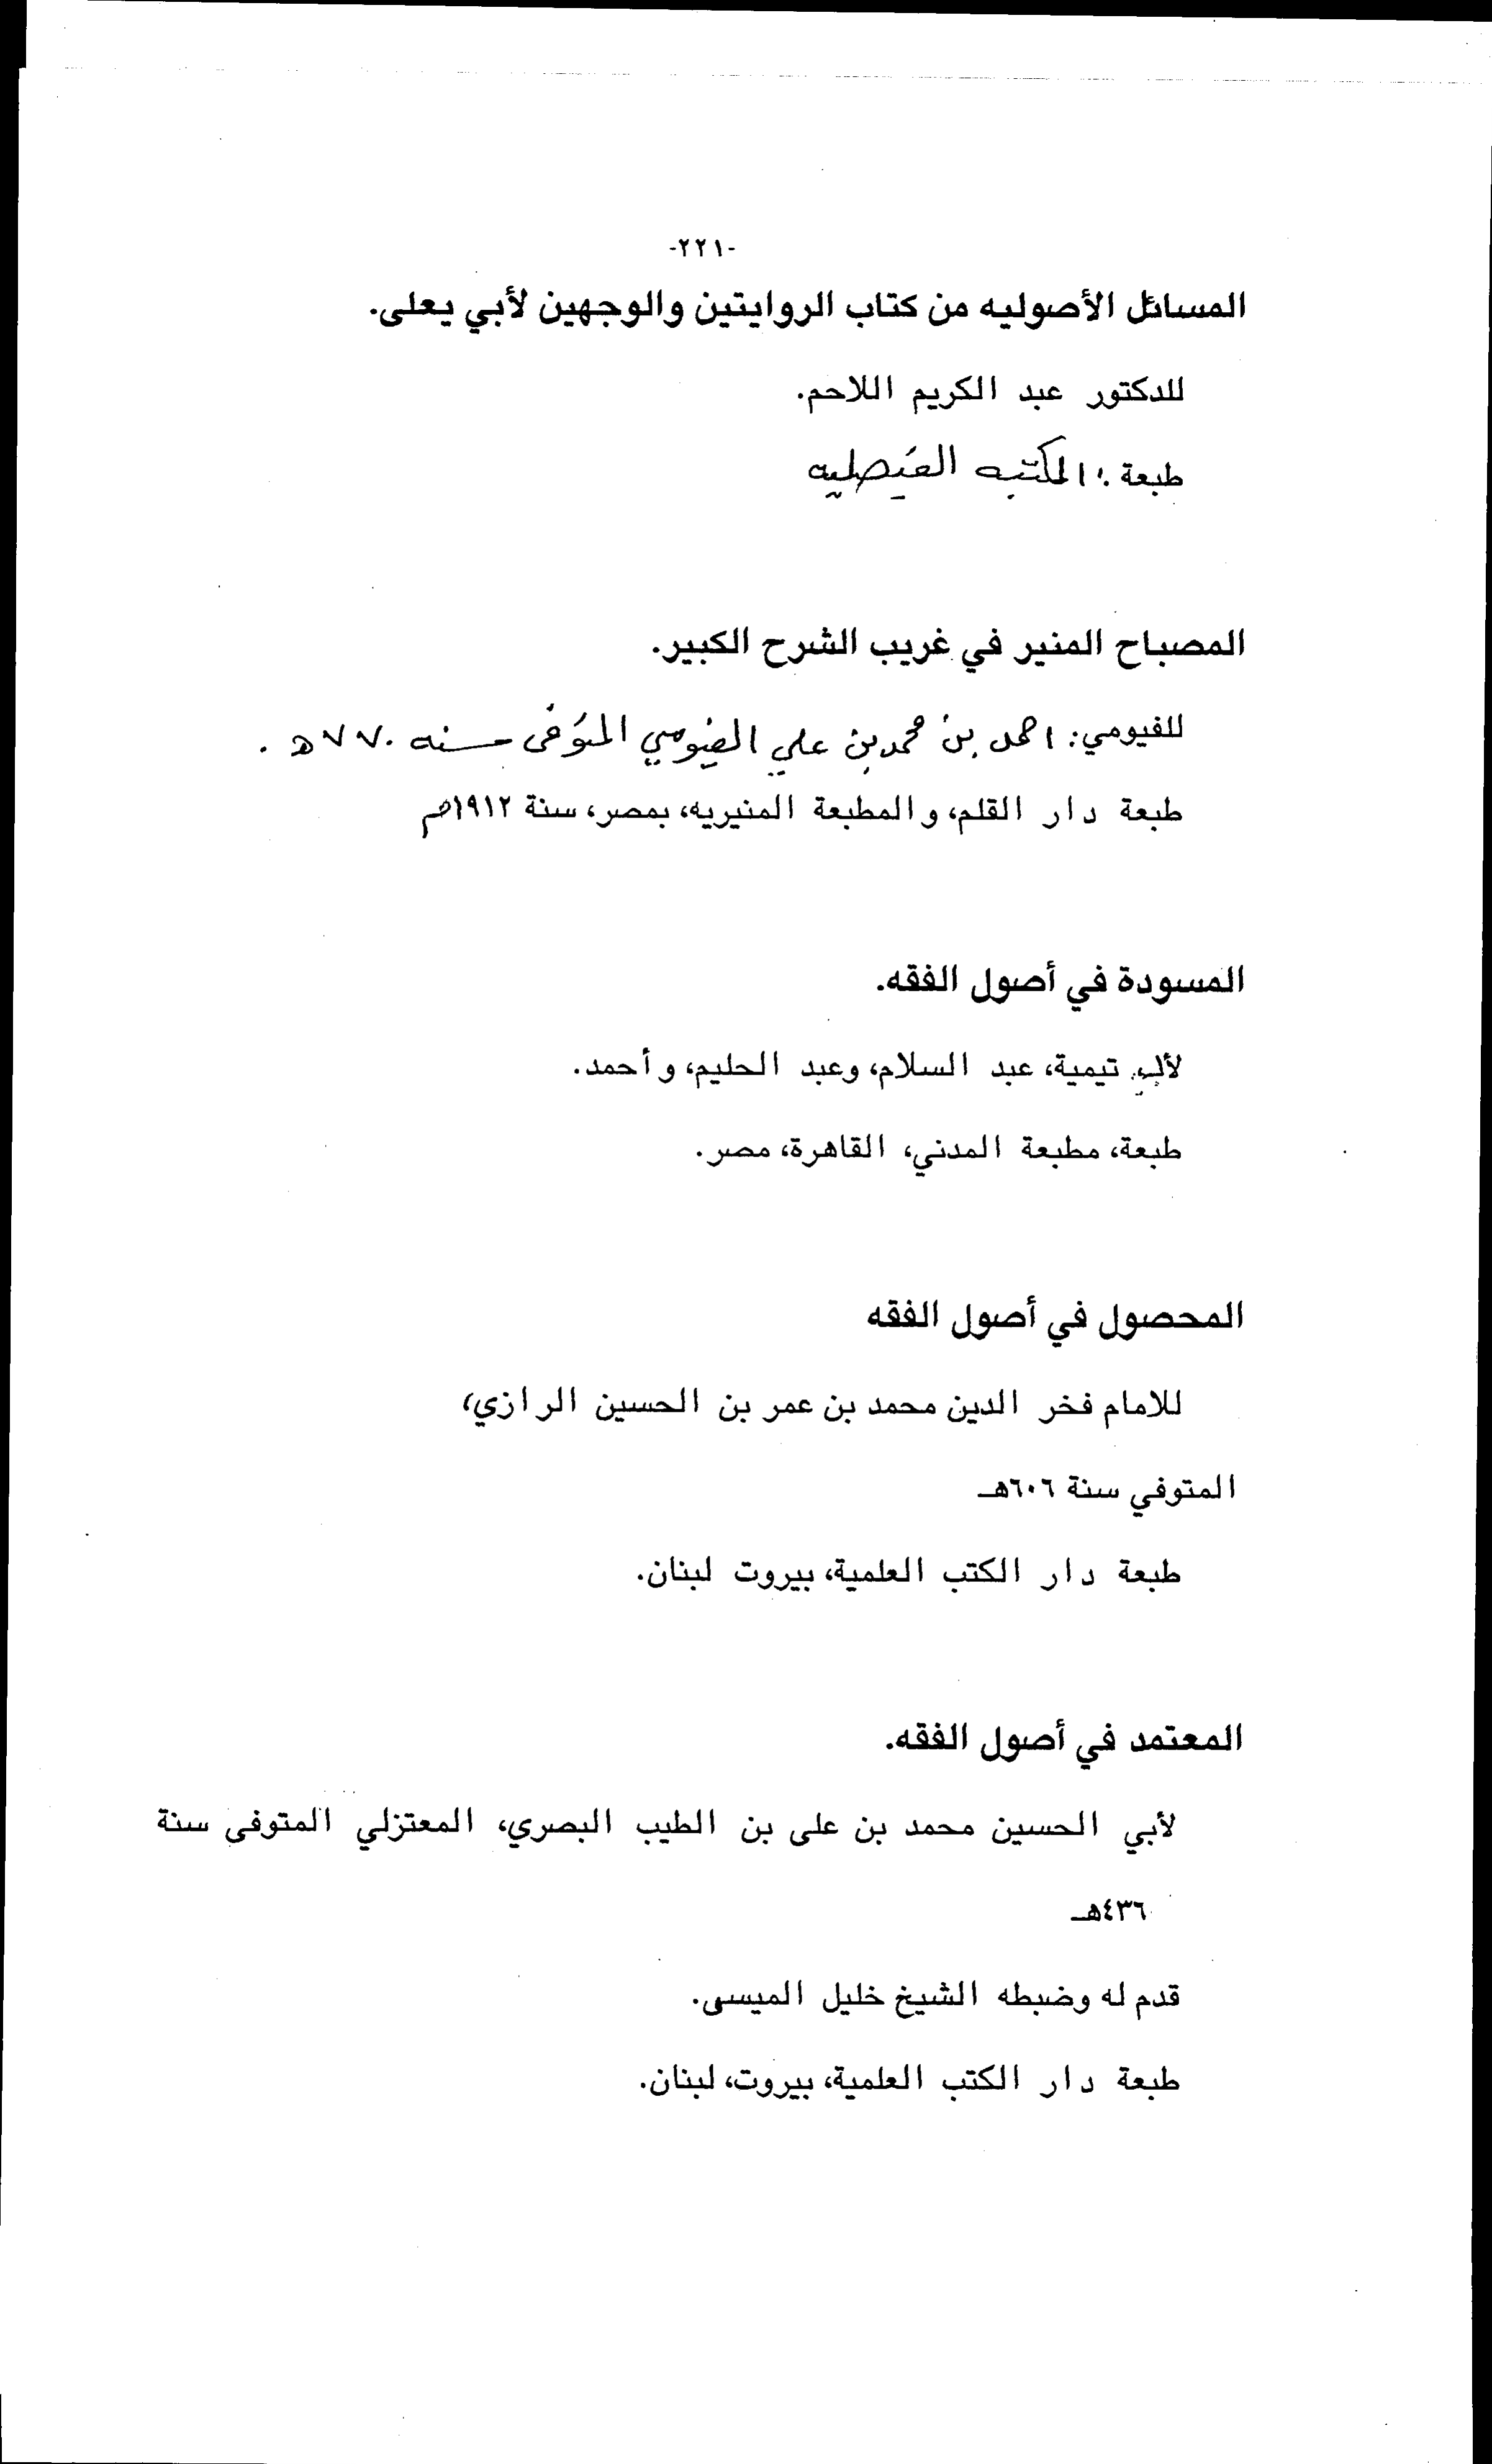 -٢٢١-
المسائل الأصوليه من كتاب الروايتين والوجهين لأبي يعلى.
للدكتور عبد الكريم اللاحم.
طبعة : المكتبه الفيصليه
المصباح المنير في غريب الشرح الكبير.
للفيومي: احمد بن محمد بن علي الفيومي المتوفى سنه ٧٧٠ه .
طبعة دار القلم، والمطبعة المنيريه، بمصر، سنة ١٩١٢م
المسودة في أصول الفقه.
لألبي تيمية، عبد السلام، وعبد الحليم، وأحمد.
طبعة، مطبعة المدني، القاهرة، مصر.
المحصول في أصول الفقه
للامام فخر الدين محمد بن عمر بن الحسين الرازي،
المتوفي سنة ٦٠٦هـ
طبعة دار الكتب العلمية، بيروت لبنان.
المعتمد في أصول الفقه.
لأبي الحسين محمد بن على بن الطيب البصري، المعتزلي المتوفى سنة
٤٣٦هـ
قدم له وضبطه الشيخ خليل الميسى.
طبعة دار الكتب العلمية، بيروت، لبنان.